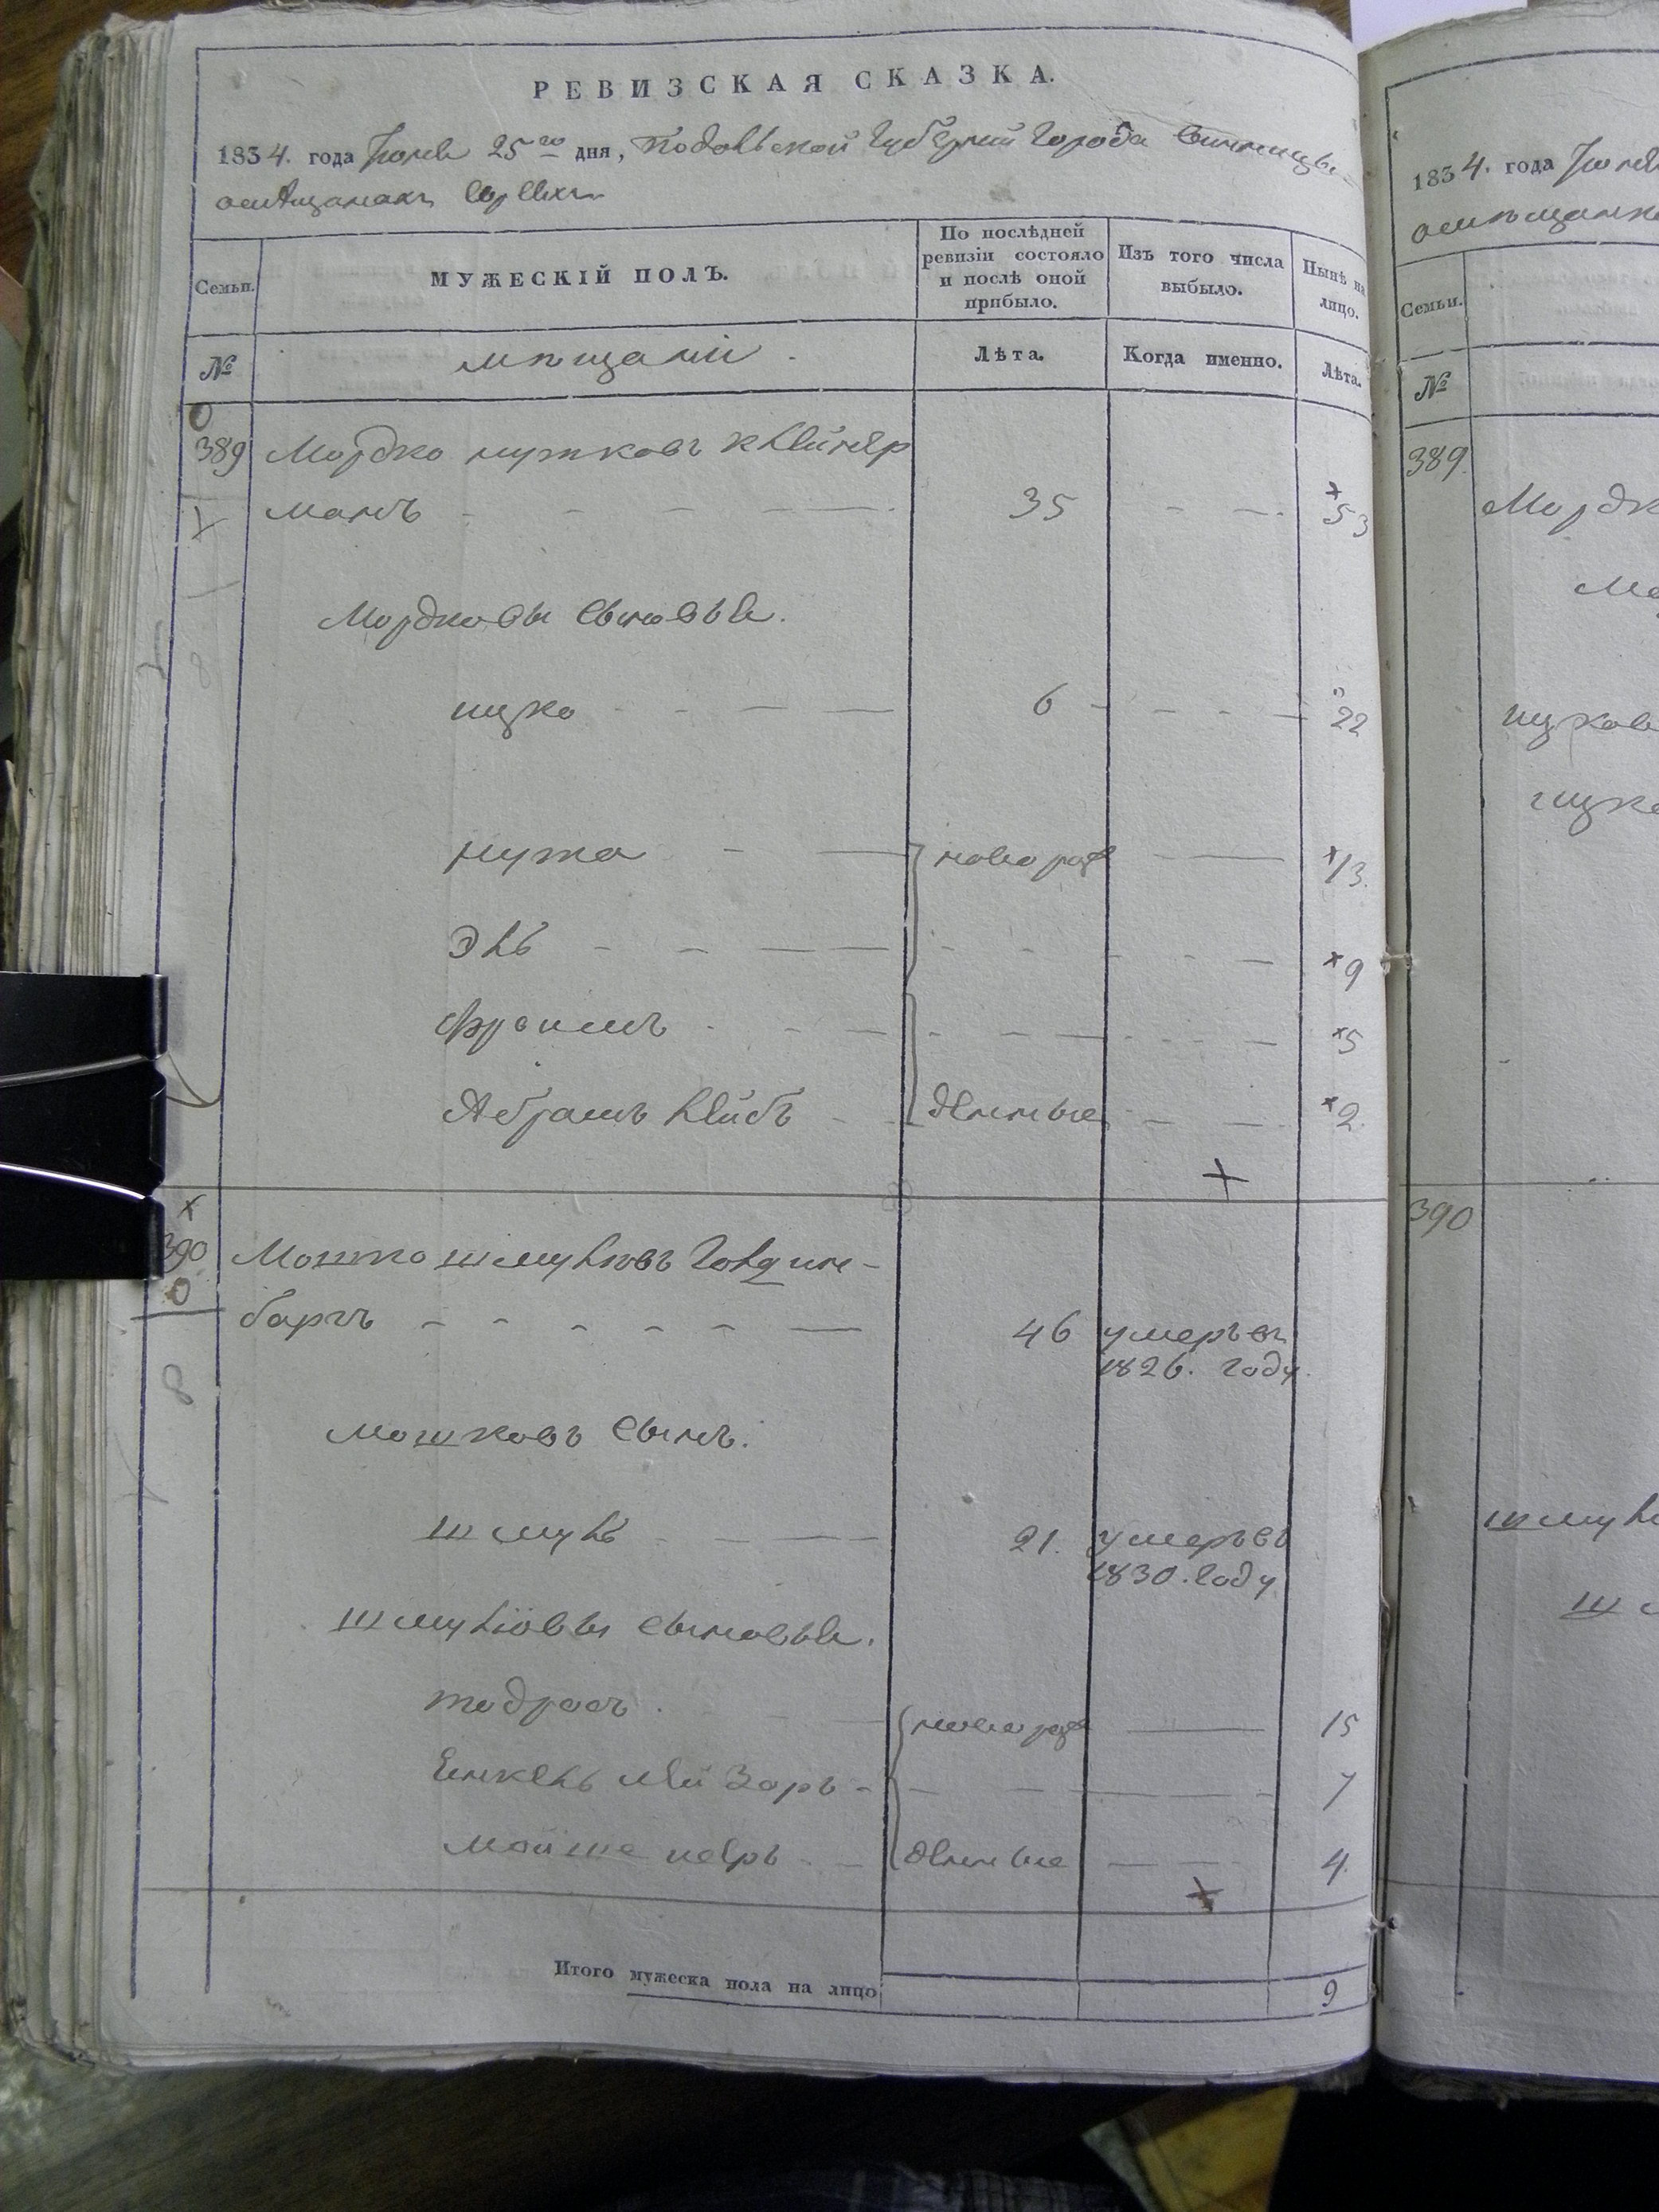 РЕВИЗСКАЯ СКАЗКА.
1834. года Июня 25го дня, Подольской Губерніи Города Винницы
о мѣщанахъ Евреяхъ
Семьи. МУЖЕСКІЙ ПОЛЪ. По послѣдней ревизіи состояло и послѣ оной прибыло. Изъ того числа выбыло. Нынѣ на лицо.
№ мѣщани Лѣта. Когда именно. Лѣта.
389 Мордко нутковъ Клейнер
манъ 35 53
Мордковы сыновья.
ицко 6 22
нутa новорож 13.
Эль 9
Фроимъ 5
Абрамъ Лейбъ денные 2.
390 Мошко шмулiовъ Голдин-
бергъ 46 умеръ въ
1826. году.
мошковъ сынъ.
шмуль 21. умеръ въ
1830. году
шмулiовы сыновья.
тодросъ новорож 15
Енкель Лейзоръ 7
мойше денные 4.
Итого мужеска пола на лицо 9
1834. года Июня
о мѣщанк
Семьи.
№
389.
Мордк
ицкова
ицк
390
шмул
ш